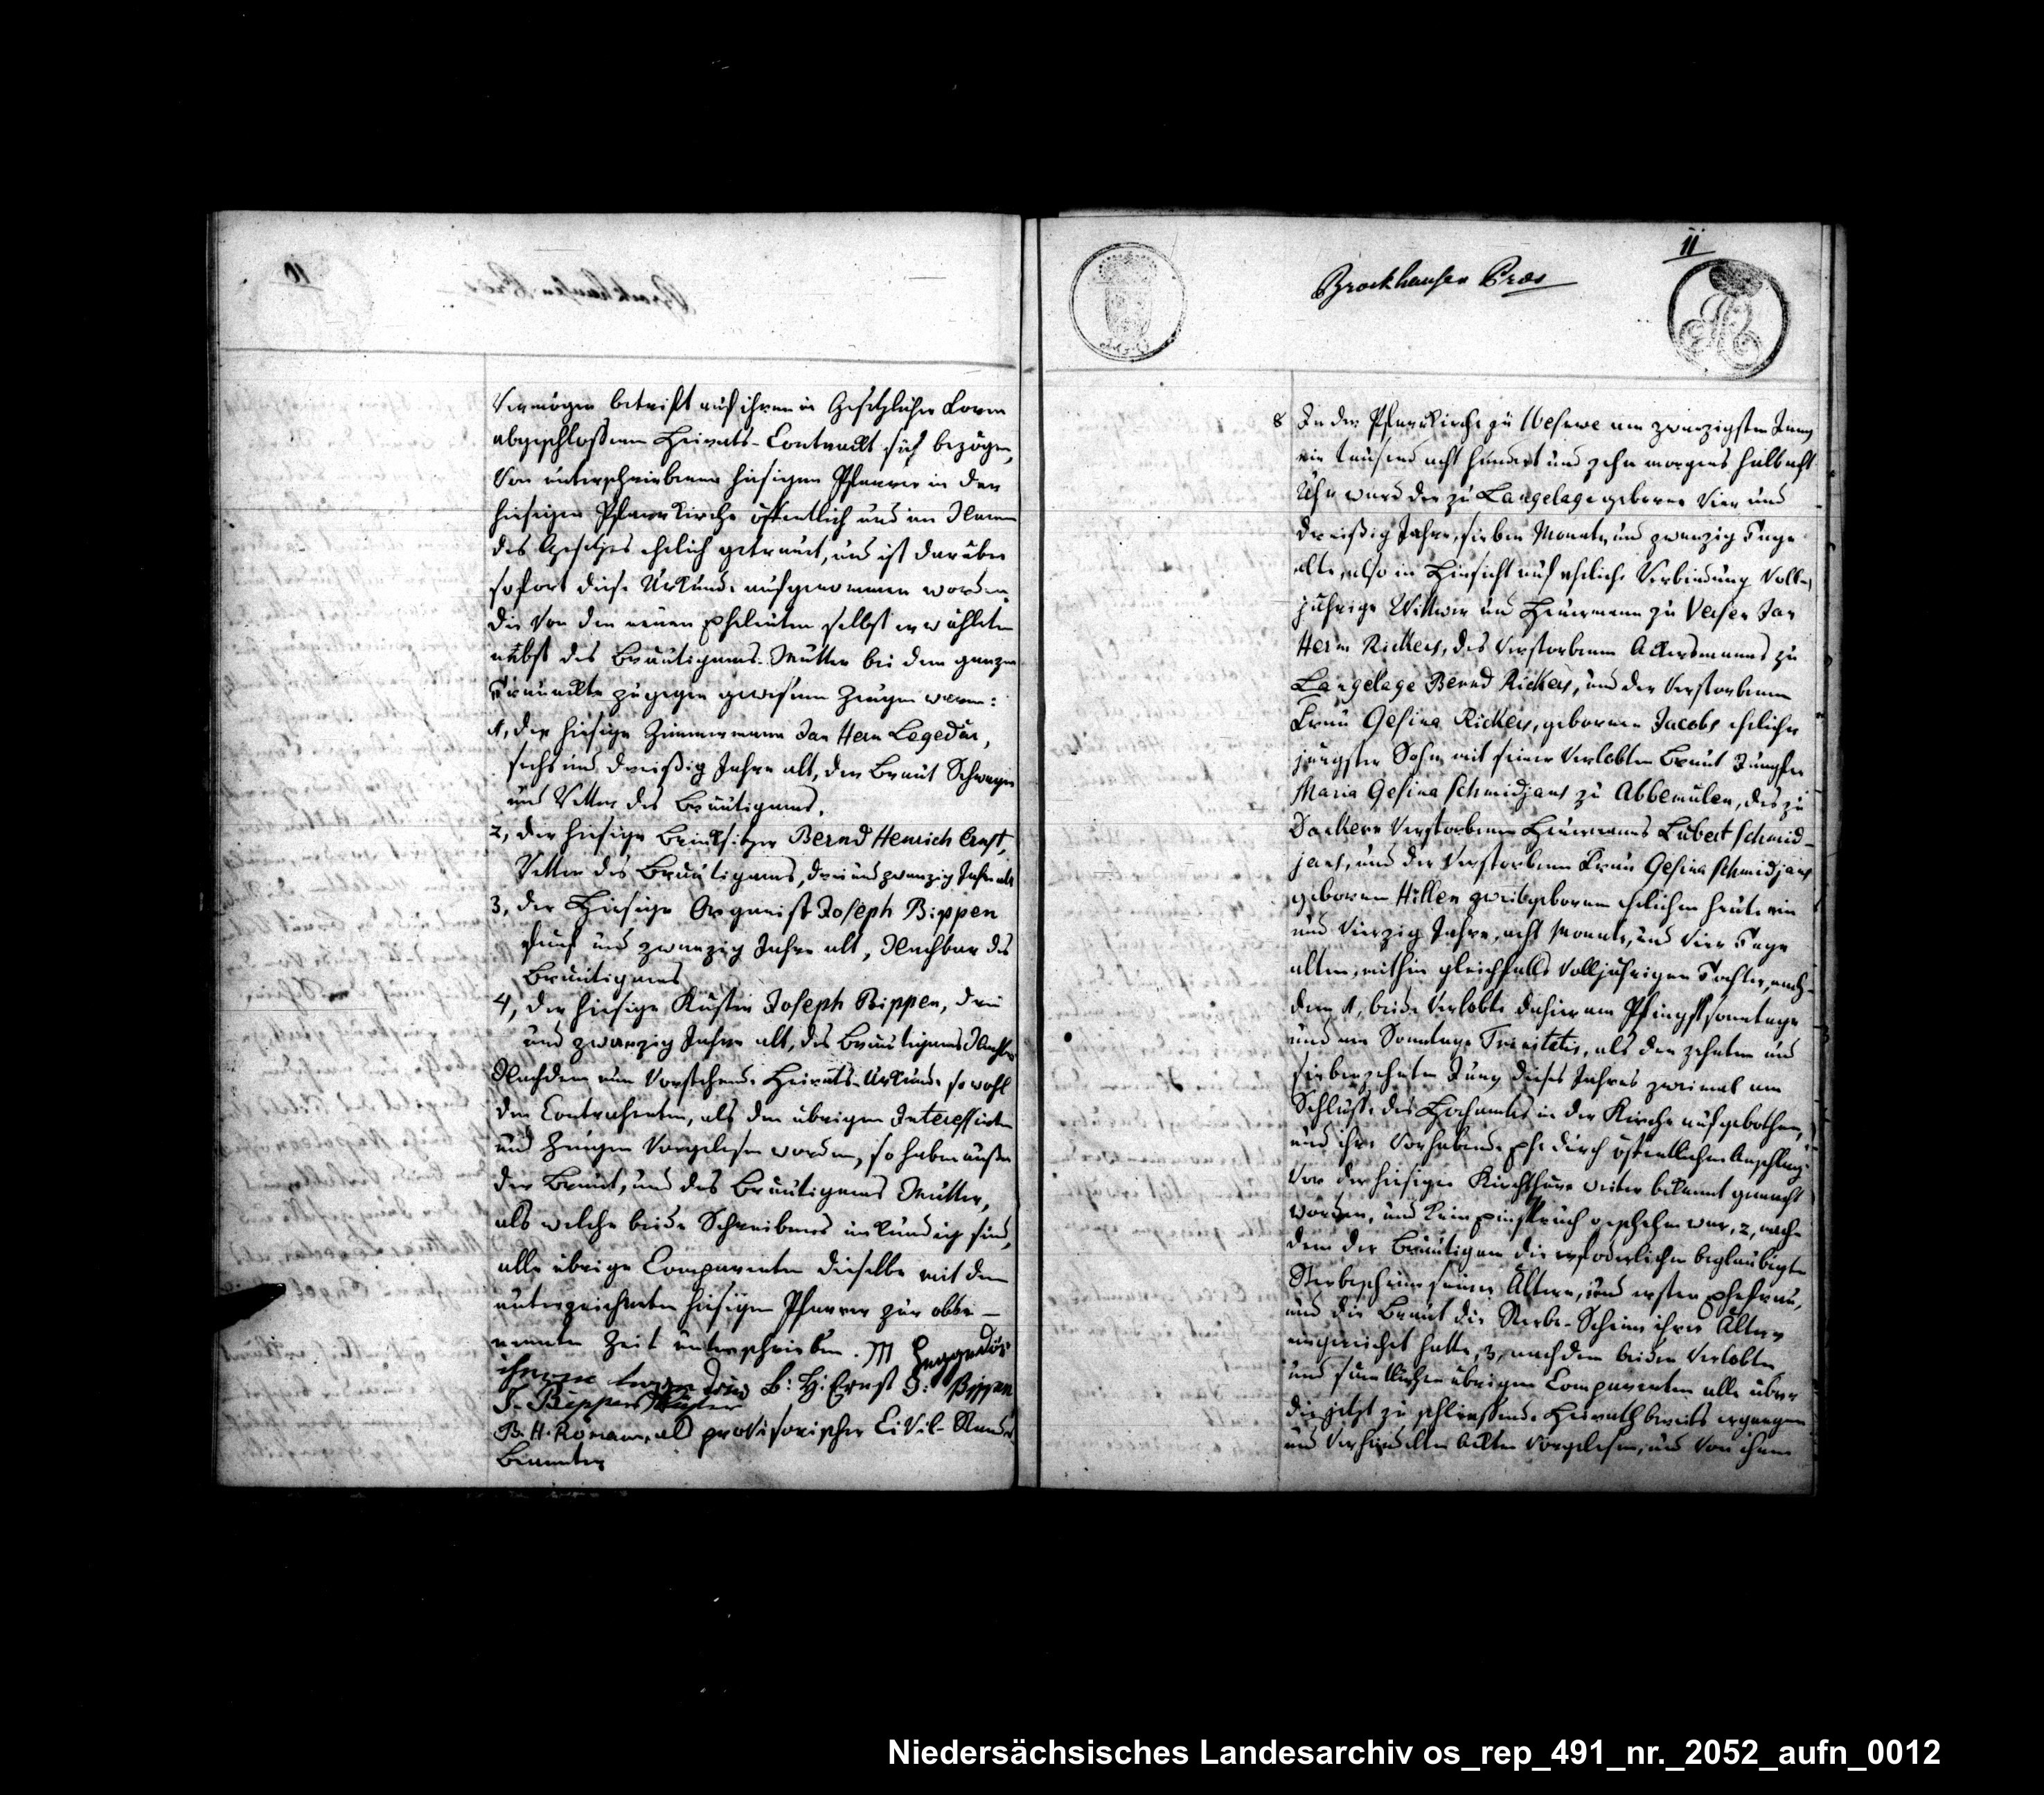 10
Vermögen betrift auf ihren in Gesetzlicher Form
abgeschloßenen Heirats-Contrackt sich bezögen,
von unterschriebenen hiesigen Pfarrer in der
hiesigen Pfarrkirche öffentlich und im Namen
des Gesetzes ehelich getrauet, und ist darüber
sofort diese Urkunde aufgenommen worden.
die von den neuen Eheleuten selbst erwählten
nebst des Bräutigams-Mutter bei dem ganzen
zugegen gewesenen Zeugen waren:
1, der hiesige Zimmermann Jan Herm Legedür,
sechs und dreißig Jahre alt, der Braut Schwager
und Vetter des Bräutigams.
2, der hiesige Brinksitzer Bernd Henrich Ernst,
Vetter des Bräutigams, drei und zwanzig Jahr alt
3, der Hiesige Organist Joseph Bippen
fünf und zwanzig Jahre alt, Nachbar des
Bräutigams
4, der hiesige Küster Joseph Bippen, drei
und zwanzig Jahre alt, des Bräutigams Nachbar
Nachdem nun Vorstehende Heirats-Urkunde so wohl
den Contrahenten, als den übrigen Interessirten
und Zeugen Vorgelesen worden, so haben außer
der Braut, und des Bräutigams Mutter,
als welche beide Schreibens unkundig sind,
alle übrige Comparenten dieselbe mit dem
unterzeichneten hiesigen Pfarrer zur obbe-
nannten Zeit unterschrieben. M
B: H: Ernst J: Bippen
J. Bippen Küster
B. H. als provisorischer Civil-Stands
Beamter
11
Brockhausen Praes
8 In der Pfarrkirche zu Wesuwe am zwanzigsten Juny
ein tausend acht hundert und zehn morgens halb acht
Uhr ward der zu Langelage geborne Vier und
dreißig Jahre, sieben Monate, und zwanzig Tage
alte, also in Hinsicht auf eheliche Verbindung Voll-
jährige Wittwer und Heuermann zu Versen Jan
Herm Rickers, des Verstorbenen Ackersmanns zu
Langelage Bernd Rickers, und der Verstorbenen
Frau Gesina Rickers, gebornen Jacobs ehelicher
jüngster Sohn mit seiner Verlobten Braut Jungfer
Maria Gesina Schmidjans zu Abbemülen, des zu
Dankern Verstorbenen Heuermanns Lubert Schmid-
jans, und der Verstorbenen Frau Gesina Schmidjans
gebornen Hillen zweitgebornen ehelichen heute ein
und Vierzig Jahre, acht Monate, und Vier Tage
alten, mithin gleichfalls Volljährigen Tochter, nach-
dem 1, beide Verlobte dahier am Pfingstsonntage
und am Sonntage Trinitatis, als den zehnten und
siebenzehnten Juny dieses Jahres zweimal am
Schluße des Hochamtes in der Kirche aufgebothen,
und ihre Vorhabende Ehe durch öffentlichen Anschlag
Vor der hiesigen Kirchthüre weiter bekannt gemacht
worden, und kein Einspruch geschehen war, 2, nach-
dem der Bräutigam die erfoderlichen beglaubigte
Sterbescheine seiner Ältern, und ersten Ehefrau,
und die Braut die Sterbe-Scheine ihrer Ältern
eingereichet hatte, 3, nachdem beiden Verlobten
und sämtlichen übrigen Comparenten alle über
die jetzt zu schliessende Heirath bereits ergangen
und Verhandelten Ackten Vorgelesen, und Von ihnen
Niedersächsisches Landesarchiv os_rep_491_nr._2052_aufn_0012